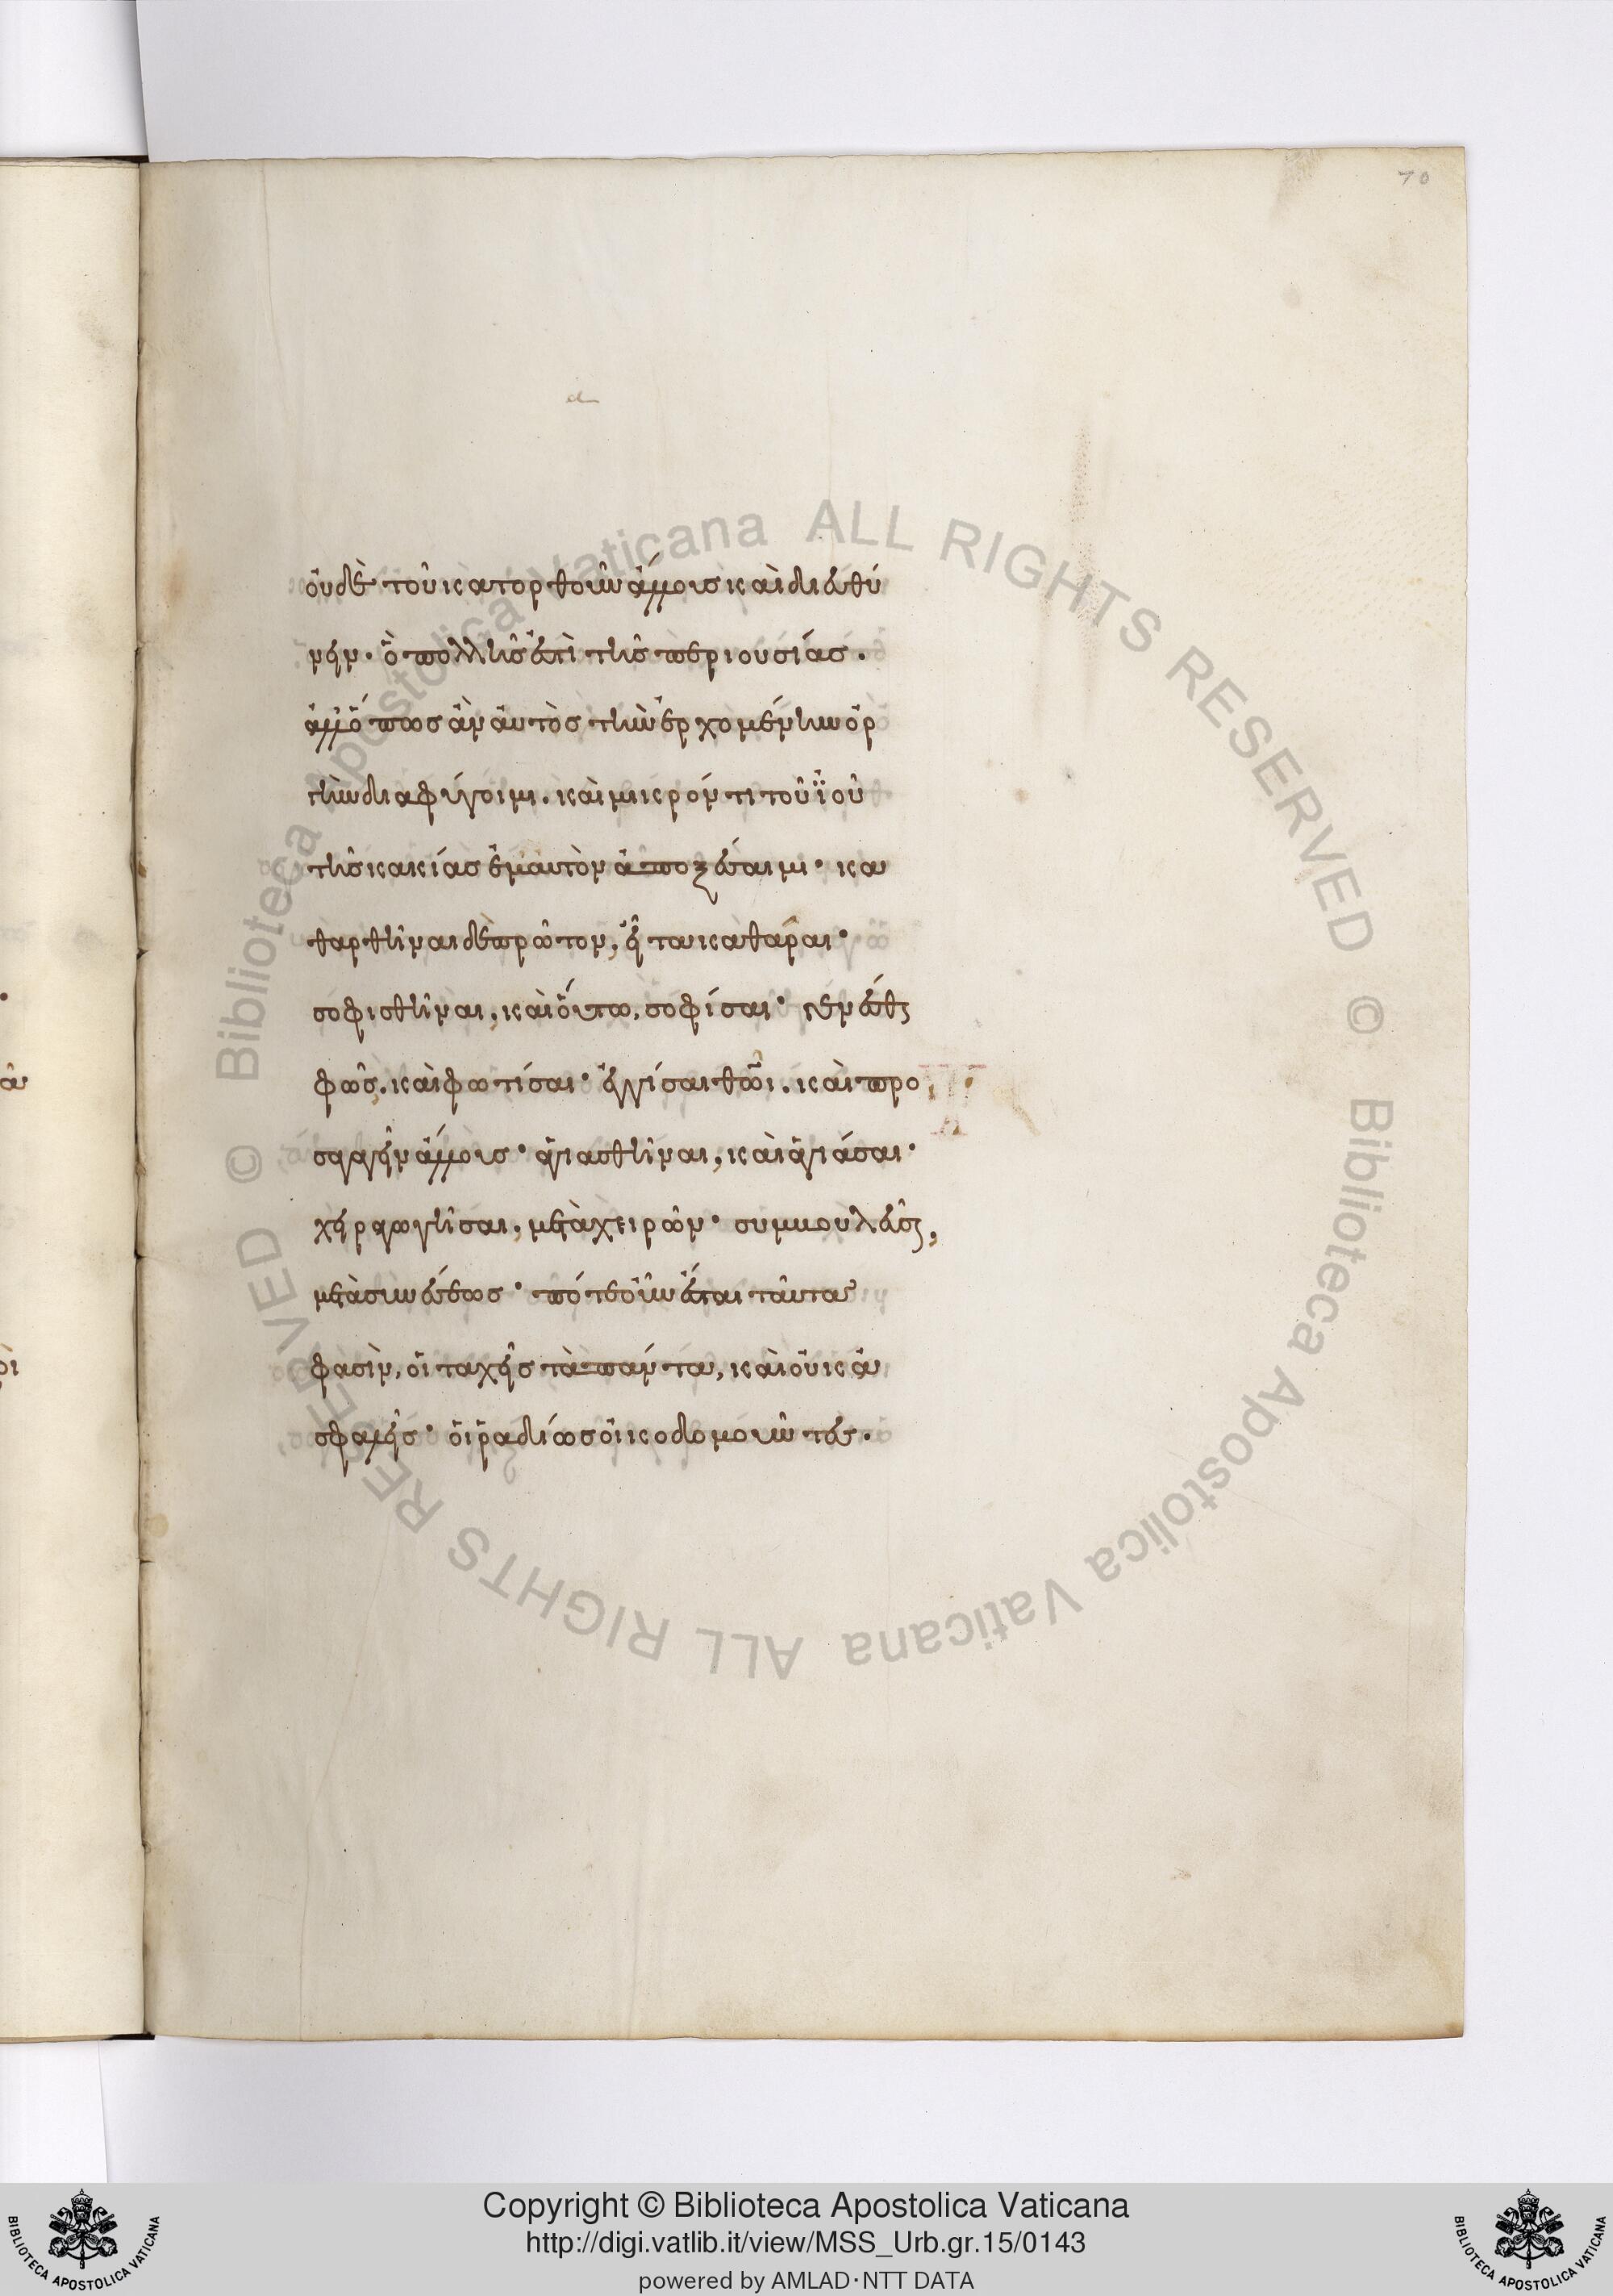 70
οὐδὲ τοῦ κατορθοῦν ἄλλοις καὶ διευθύ
νειν· ὃ πολλῆς ἐστὶ τῆς περιουσίας.
ἀλλ' ὅπως ἂν αὐτὸς τὴν ἐρχομένην ὀρ
γὴν διαφύγοιμι. καὶ μικρόν τι τοῦ ἰοῦ
τῆς κακίας ἐμαυτὸν ἀποξέσαιμι· κα
θαρθῆναι δὲ πρῶτον, εἶτα καθᾶραι·
σοφισθῆναι, καὶ οὕτω, σοφίσαι· γενέσθαι
φῶς, καὶ φωτίσαι· ἐγγίσαι θεῷ, καὶ προ
σαγαγεῖν ἄλλους· ἁγιασθῆναι, καὶ ἁγιάσαι·
χειραγωγῆσαι, μετὰ χειρῶν· συμβουλεῦσαι,
μετὰ συνέσεως· πότε οὖν ἔσται ταῦτα
φασὶν, οἱ ταχεῖς τὰ πάντα, καὶ οὐκ ἀ
σφαλεῖς· οἱ ῥαδίως οἰκοδομοῦντες.
Biblioteca Apostolica Vaticana ALL RIGHTS RESERVED ©
Biblioteca Apostolica Vaticana ALL RIGHTS RESERVED ©
Copyright © Biblioteca Apostolica Vaticana
http://digi.vatlib.it/view/MSS_Urb.gr.15/0143
powered by AMLAD・NTT DATA
BIBLIOTECA APOSTOLICA VATICANA
BIBLIOTECA APOSTOLICA VATICANA